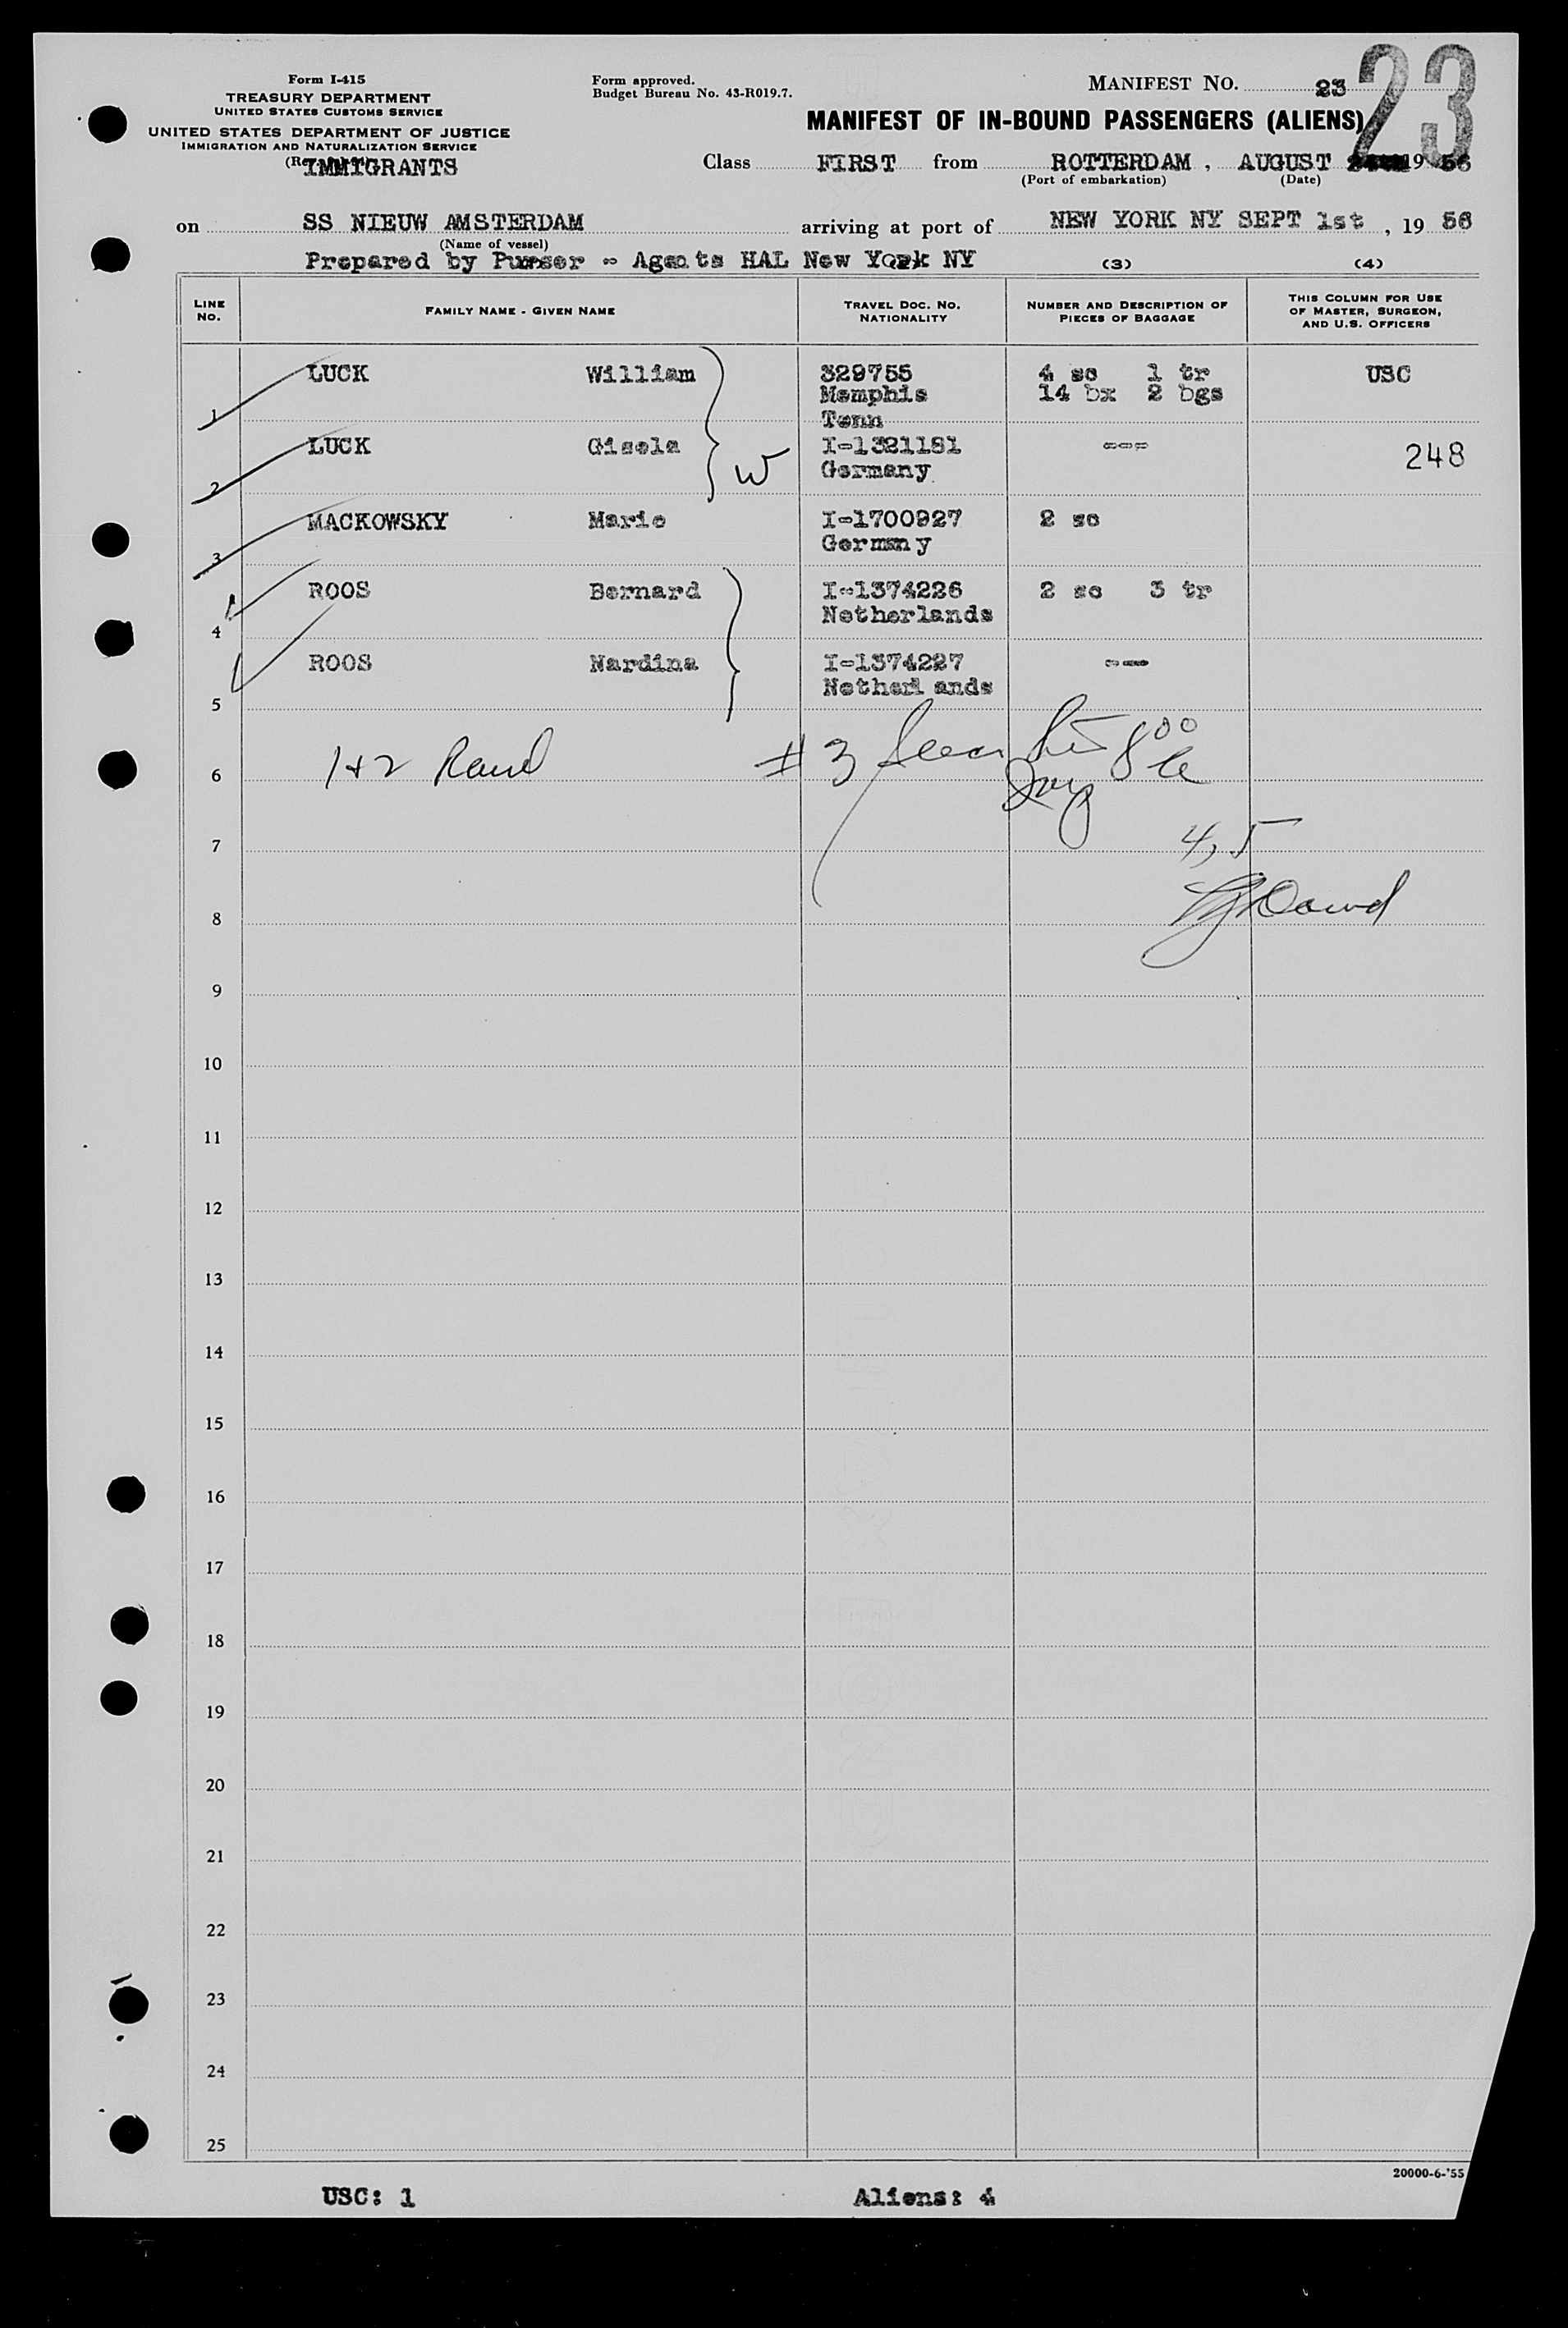 Form I-415
TREASURY DEPARTMENT
UNITED STATES CUSTOMS SERVICE
UNITED STATES DEPARTMENT OF JUSTICE
IMMIGRATION AND NATURALIZATION SERVICE
IMMIGRANTS
Form approved.
Budget Bureau No. 43-R019.7.
MANIFEST NO. 23
23
MANIFEST OF IN-BOUND PASSENGERS (ALIENS)
Class FIRST from ROTTERDAM , AUGUST 19 56
(Port of embarkation) (Date)
on SS NIEUW AMSTERDAM arriving at port of NEW YORK NY SEPT 1st , 19 56
(Name of vessel)
Prepared by Purser - Agents HAL New York NY (3) (4)
LINE NO. FAMILY NAME - GIVEN NAME TRAVEL DOC. NO. NATIONALITY NUMBER AND DESCRIPTION OF PIECES OF BAGGAGE THIS COLUMN FOR USE OF MASTER, SURGEON, AND U.S. OFFICERS
1 LUCK William 329755 Memphis Tenn 4 sc 1 tr 14 bx 2 bgs USC
2 LUCK Gisela W I-1321181 Germany --- 248
3 MACKOWSKY Marie I-1700927 Germany 2 sc
4 ROOS Bernard I-1374226 Netherlands 2 sc 3 tr
5 ROOS Nardina I-1374227 Netherl ands ---
6 1+2 # 3 800
7 4, 5
8
9
10
11
12
13
14
15
16
17
18
19
20
21
22
23
24
25
20000-6-'55
USC: 1 Aliens: 4